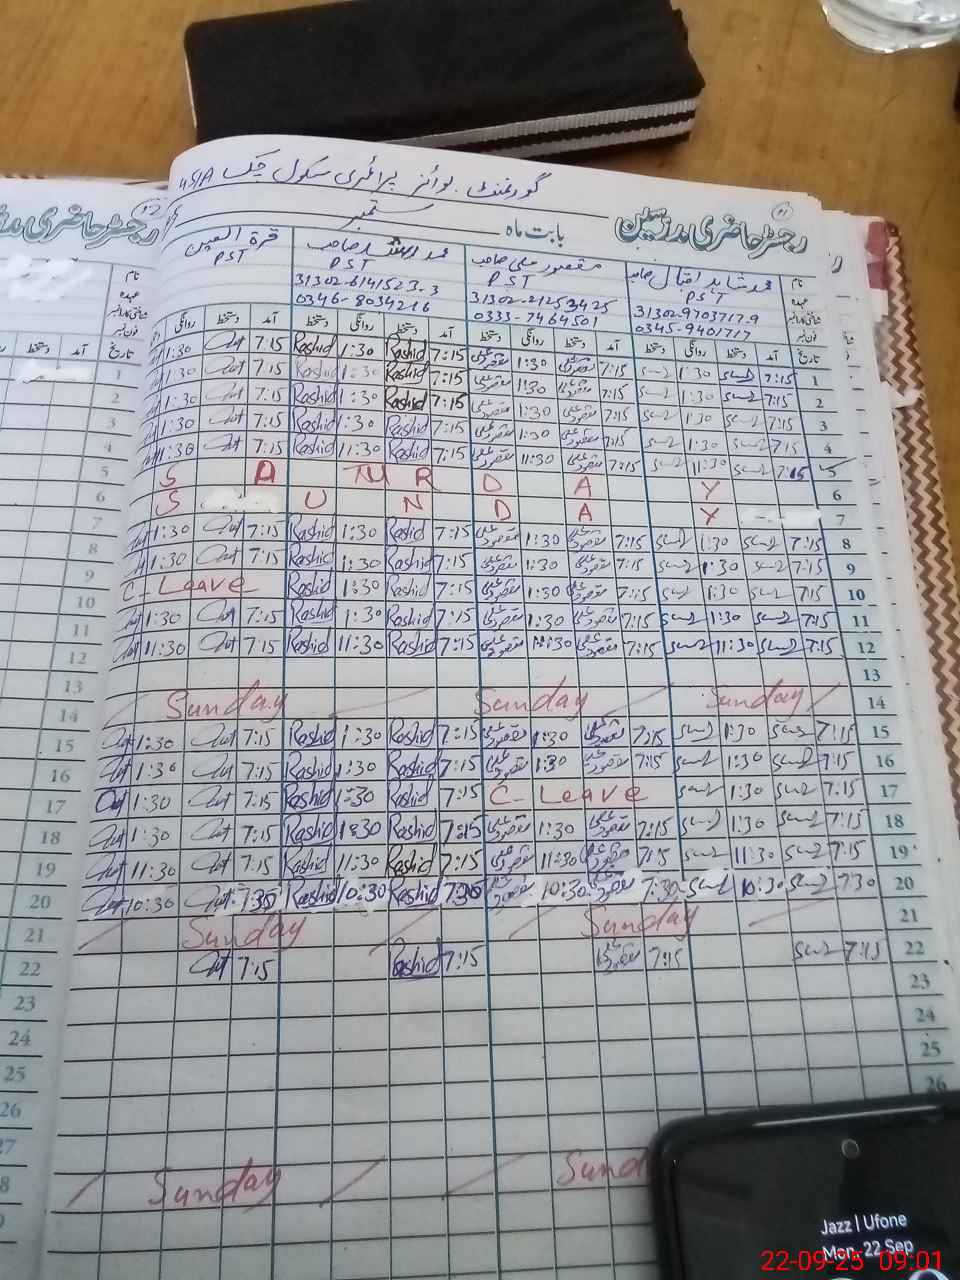 گورنمنٹ بوائز پرائمری سکول چک 45/A
رجسٹر حاضری مدرسین بابت ماہ ستمبر
نام محمد شاہد اقبال صاحب مقصود علی صاحب محمد راشد صاحب قرۃ العین
عہدہ PST PST PST PST
شناختی کارڈ نمبر 31302-9703717-9 31302-6141523-3
فون نمبر 0345-9401717 0333-7464501 0346-8034216
تاریخ آمد دستخط روانگی دستخط آمد دستخط روانگی دستخط آمد دستخط روانگی دستخط آمد دستخط روانگی
1 7:15 1:30 7:15 مقصود علی 1:30 مقصود علی 7:15 Rashid 1:30 Rashid 7:15 1:30
2 7:15 1:30 7:15 مقصود علی 1:30 مقصود علی 7:15 Rashid 1:30 Rashid 7:15 1:30
3 7:15 1:30 7:15 مقصود علی 1:30 مقصود علی 7:15 Rashid 1:30 Rashid 7:15 1:30
4 7:15 1:30 7:15 مقصود علی 1:30 مقصود علی 7:15 Rashid 1:30 Rashid 7:15 1:30
5 7:15 11:30 7:15 مقصود علی 11:30 مقصود علی 7:15 Rashid 11:30 Rashid 7:15 11:30
6 S A TU R D A Y
7 S U N D A Y
8 7:15 1:30 7:15 مقصود علی 1:30 مقصود علی 7:15 Rashid 1:30 Rashid 7:15 1:30
9 7:15 1:30 7:15 مقصود علی 1:30 مقصود علی 7:15 Rashid 1:30 Rashid 7:15 1:30
10 7:15 1:30 7:15 مقصود علی 1:30 مقصود علی 7:15 Rashid 1:30 Rashid C-Leave
11 7:15 1:30 7:15 مقصود علی 1:30 مقصود علی 7:15 Rashid 1:30 Rashid 7:15 1:30
12 7:15 11:30 7:15 مقصود علی 11:30 مقصود علی 7:15 Rashid 11:30 Rashid 7:15 11:30
13
14 Sunday Sunday Sunday
15 7:15 1:30 7:15 مقصود علی 1:30 مقصود علی 7:15 Rashid 1:30 Rashid 7:15 1:30
16 7:15 1:30 7:15 مقصود علی 1:30 مقصود علی 7:15 Rashid 1:30 Rashid 7:15 1:30
17 7:15 1:30 C-Leave 7:15 Rashid 1:30 Rashid 7:15 1:30
18 7:15 1:30 7:15 مقصود علی 1:30 مقصود علی 7:15 Rashid 1:30 Rashid 7:15 1:30
19 7:15 11:30 7:15 مقصود علی 11:30 مقصود علی 7:15 Rashid 11:30 Rashid 7:15 11:30
20 7:30 10:30 7:30 مقصود علی 10:30 مقصود علی 7:30 Rashid 10:30 Rashid 7:30 10:30
21 Sunday Sunday
22 7:15 7:15 مقصود علی 7:15 Rashid 7:15
23
24
25
26
Sunday Sund
Jazz | Ufone
Mon, 22 Sep
22-09-25 09:01